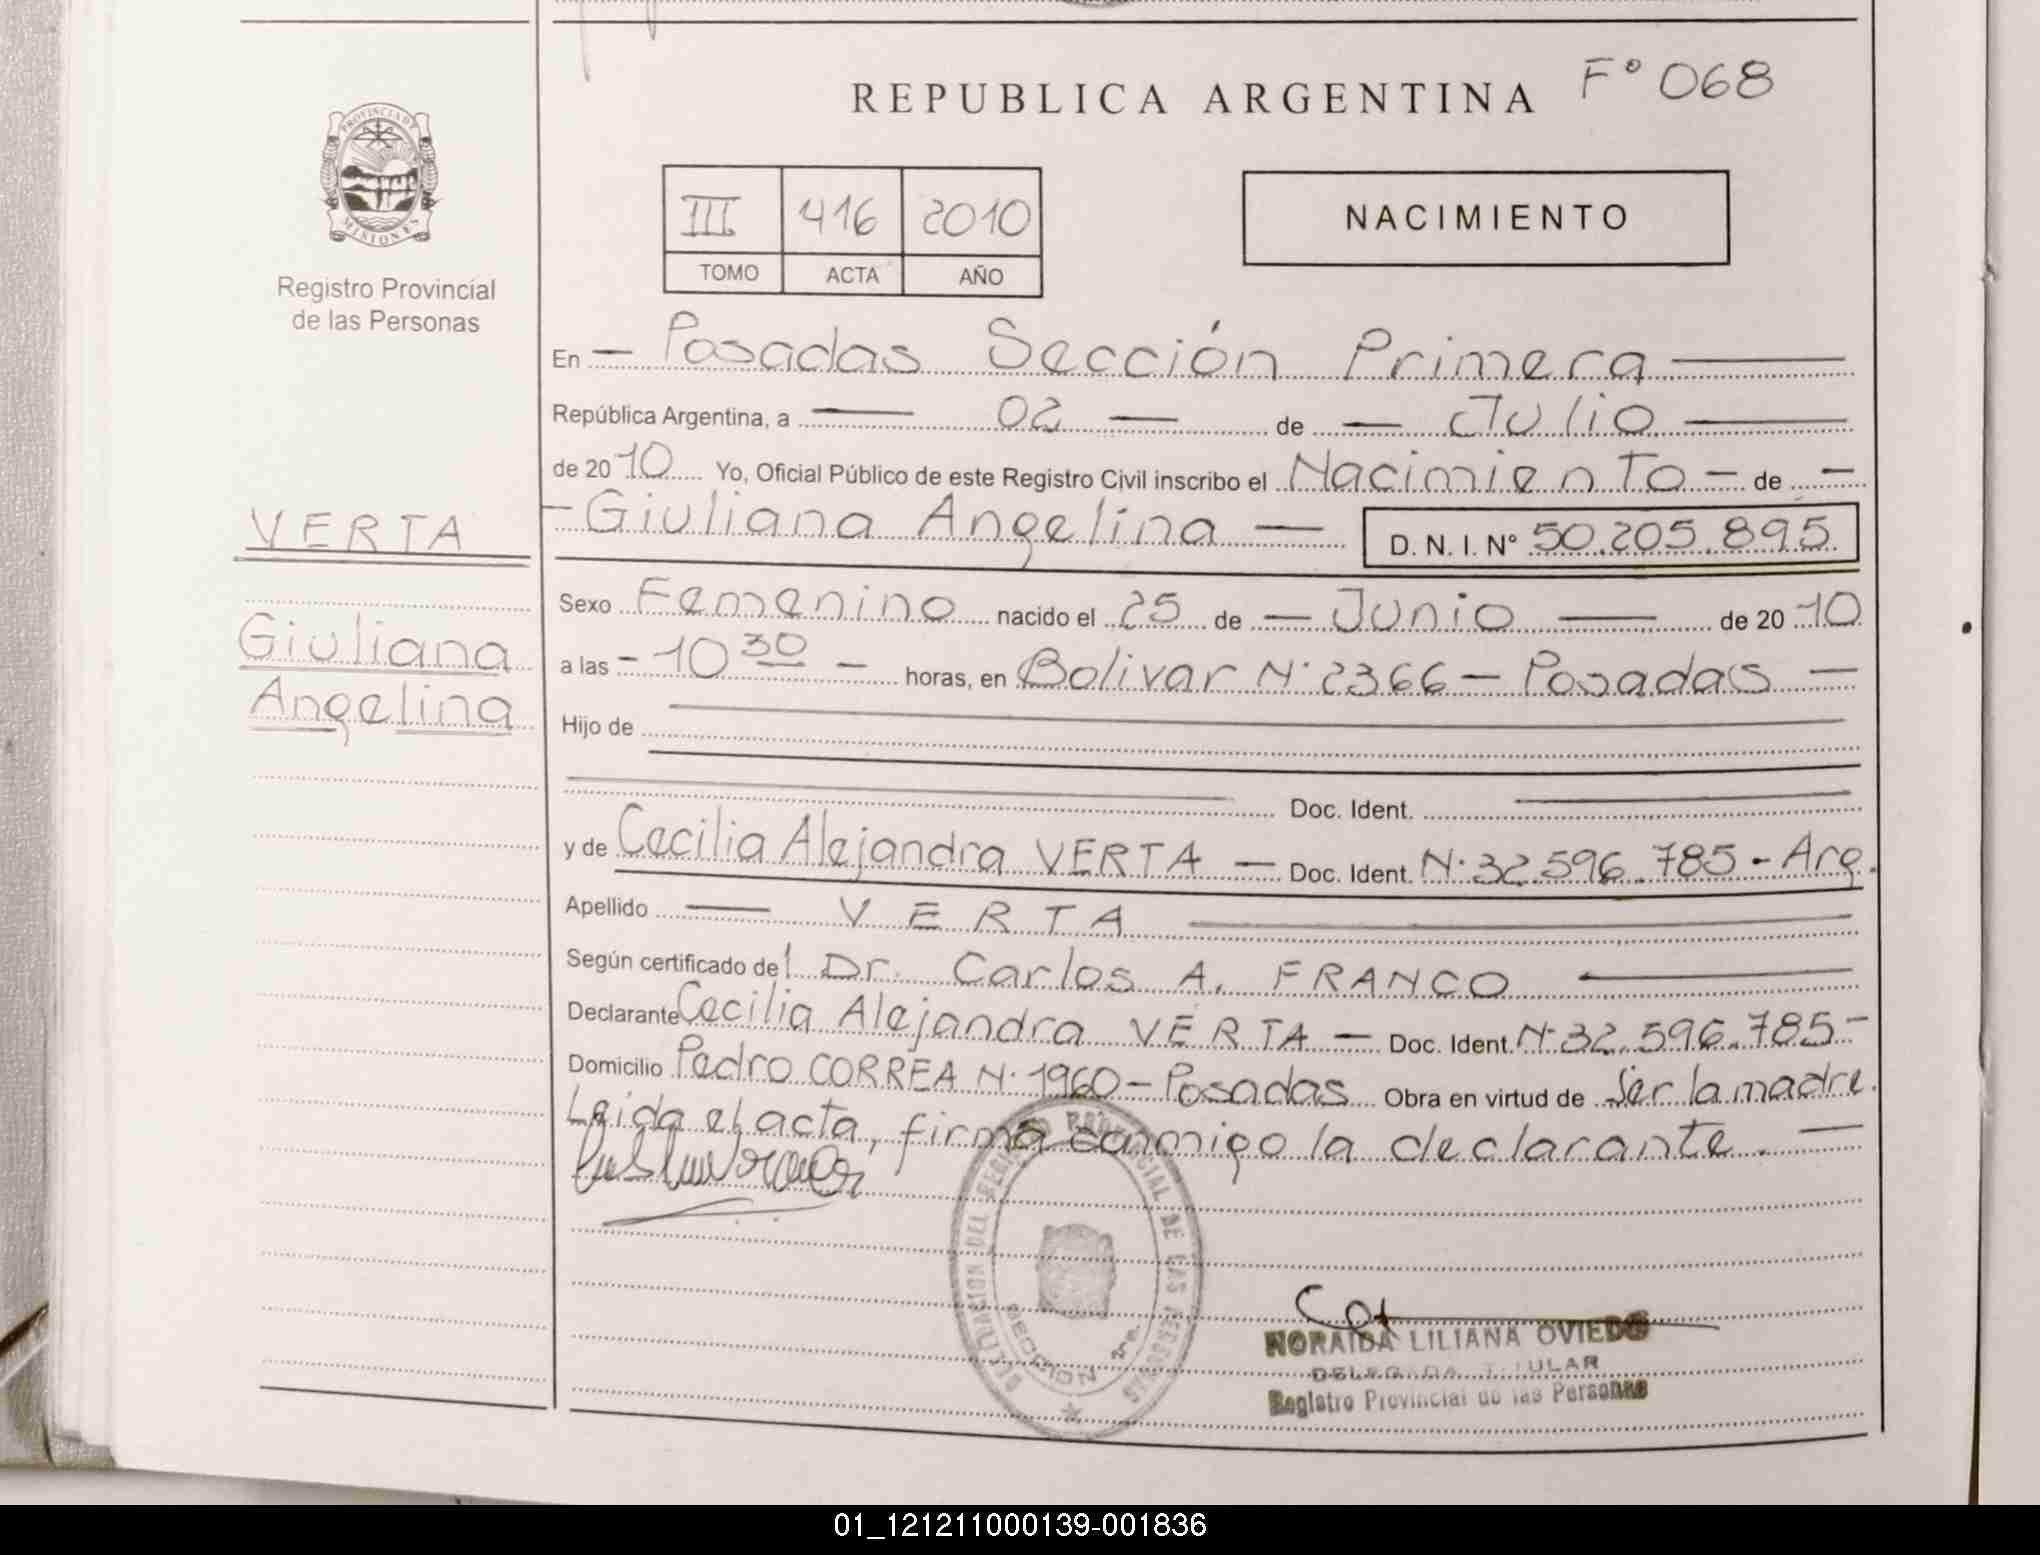 REPUBLICA ARGENTINA F° 068
PROVINCIA DE MISIONES
Registro Provincial
de las Personas
III 416 2010
TOMO ACTA AÑO
NACIMIENTO
En — Posadas Sección Primera —
República Argentina, a — 02 — de — Julio —
de 2010 Yo, Oficial Público de este Registro Civil inscribo el Nacimiento — de —
VERTA
— Giuliana Angelina — D. N. I. N° 50.205.895
Giuliana
Angelina
Sexo Femenino nacido el 25 de — Junio — de 2010
a las - 10 30 - horas, en Bolivar N° 2366 - Posadas —
Hijo de
Doc. Ident.
y de Cecilia Alejandra VERTA — Doc. Ident. N° 32.596.785 - Arg.
Apellido — VERTA —
Según certificado del Dr. Carlos A. FRANCO —
Declarante Cecilia Alejandra VERTA — Doc. Ident. N° 32.596.785 -
Domicilio Pedro CORREA N° 1960 - Posadas Obra en virtud de Ser la madre.
Leida el acta, firma conmigo la declarante. —
DELEGACION DEL REGISTRO PROVINCIAL DE LAS PERSONAS
SECCION 1ra.
NORAIDA LILIANA OVIEDO
DELEGADA TITULAR
Registro Provincial de las Personas
01_121211000139-001836